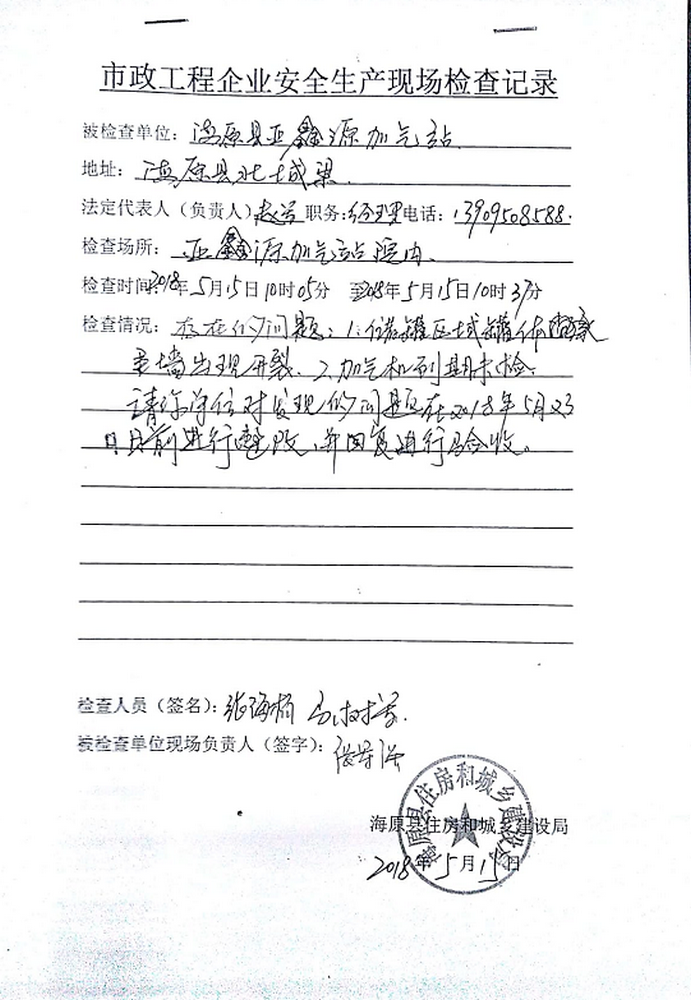 市政工程企业安全生产现场检查记录
被检查单位：海原县亚鑫源加气站
地址：海原县北城梁
法定代表人（负责人）职务：经理 电话：13909508588.
检查场所：亚鑫源加气站院内.
检查时间：2018年5月15日10时05分 至2018年5月15日10时37分
检查情况：存在的问题：1.储罐区域罐体
墙出现开裂、2.加气机到期未检.
请你单位对发现的问题在2018年5月23
日前进行整改，并回复进行验收。
检查人员（签名）：张海
被检查单位现场负责人（签字）：
海原县住房和城乡建设局
海原县住房和城乡建设局
2018年5月15日